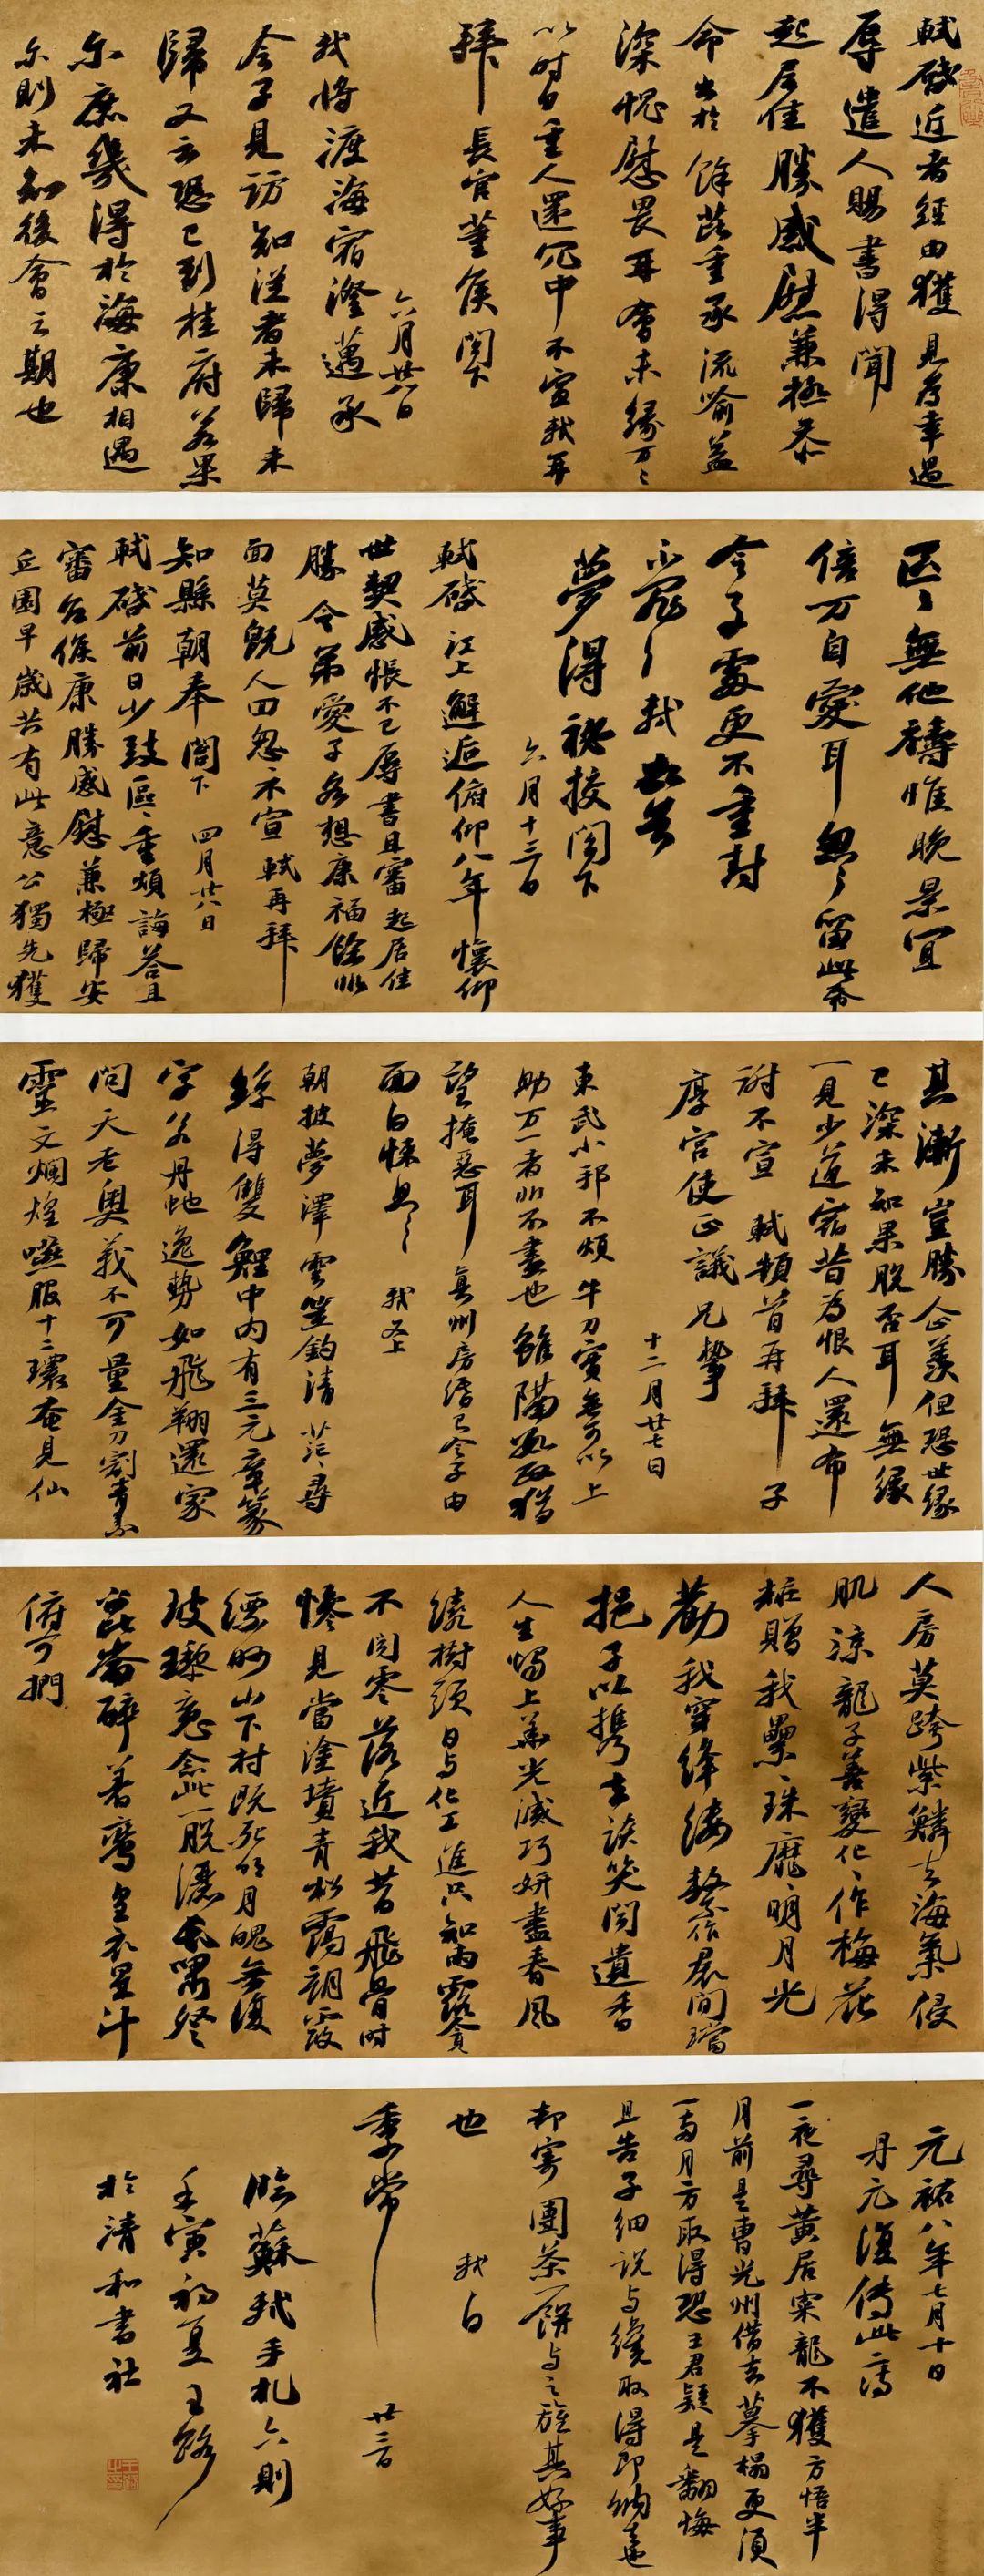 軾啓近者經由獲見爲幸過
辱遣人賜書得聞
起居佳勝感慰兼極忝
命出於餘芘重承流喻益
深愧慰畏耳會未緣万万
以时自重人還冗中不宣軾再
拜長官董侯閣下
六月廿八日
軾將渡海宿澄邁承
令子見訪知從者未歸未
歸又云恐已到桂府若果
尓庶幾得於海康相遇
尓則未知後會之期也
區區無他禱惟晚景宜
倍万自愛耳忽忽留此帋
令子處更不重封
不罪不罪軾頓首
夢得秘校閣下
六月十三日
軾啓江上邂逅俯仰八年懷仰
世契感悵不已辱書且審起居佳
勝令弟愛子各想康福餘非
面莫既人回忽不宣軾再拜
知縣朝奉閣下四月廿八日
軾啓前日少致區區重煩誨答且
審台候康勝感慰兼極歸安
丘園早歲共有此意公獨先獲
其漸豈勝企羨但恐世緣
已深未知果脫否耳無緣
一見少道宿昔為恨人還布
謝不宣軾頓首再拜子
厚宮使正議兄執事
十二月廿七日
東武小邦不煩牛刀實無可以上
助万一者非不盡也雖隔數政猶
望掩惡耳真州房緡已令子由
面白悚息悚息軾又上
朝披夢澤雲笠釣清茫茫尋
絲得雙鯉中内有三元章篆
字若丹蛇逸勢如飛翔還家
問天老奥義不可量金刀割青素
靈文爛煌煌嚥服十二環奄見仙
人房莫跨紫鱗去海氣侵
肌涼龍子善變化化作梅花
粧贈我纍纍珠靡靡明月光
勸我穿絳縷繫作裙間璫
挹子以攜去談笑聞遺香
人生燭上華光滅巧妍盡春風
繞樹頭日與化工進只知雨露貪
不聞零落近我昔飛骨時
慘見當塗墳青松靄朝霞
縹緲山下村既死明月魄無復
玻瓈魂念此一脫灑長嘯登
崑崙醉著鸞皇衣星斗
俯可捫
元祐八年七月十日
丹元復傳此二詩
一夜尋黃居寀龍不獲方悟半
月前是曹光州借去摹榻更須
一兩月方取得恐王君疑是翻悔
且告子細說與纔取得即納去也
却寄團茶一餅與之旌其好事
也軾白
季常廿三日
臨蘇軾手札六則
壬寅初夏王路
於清和書社